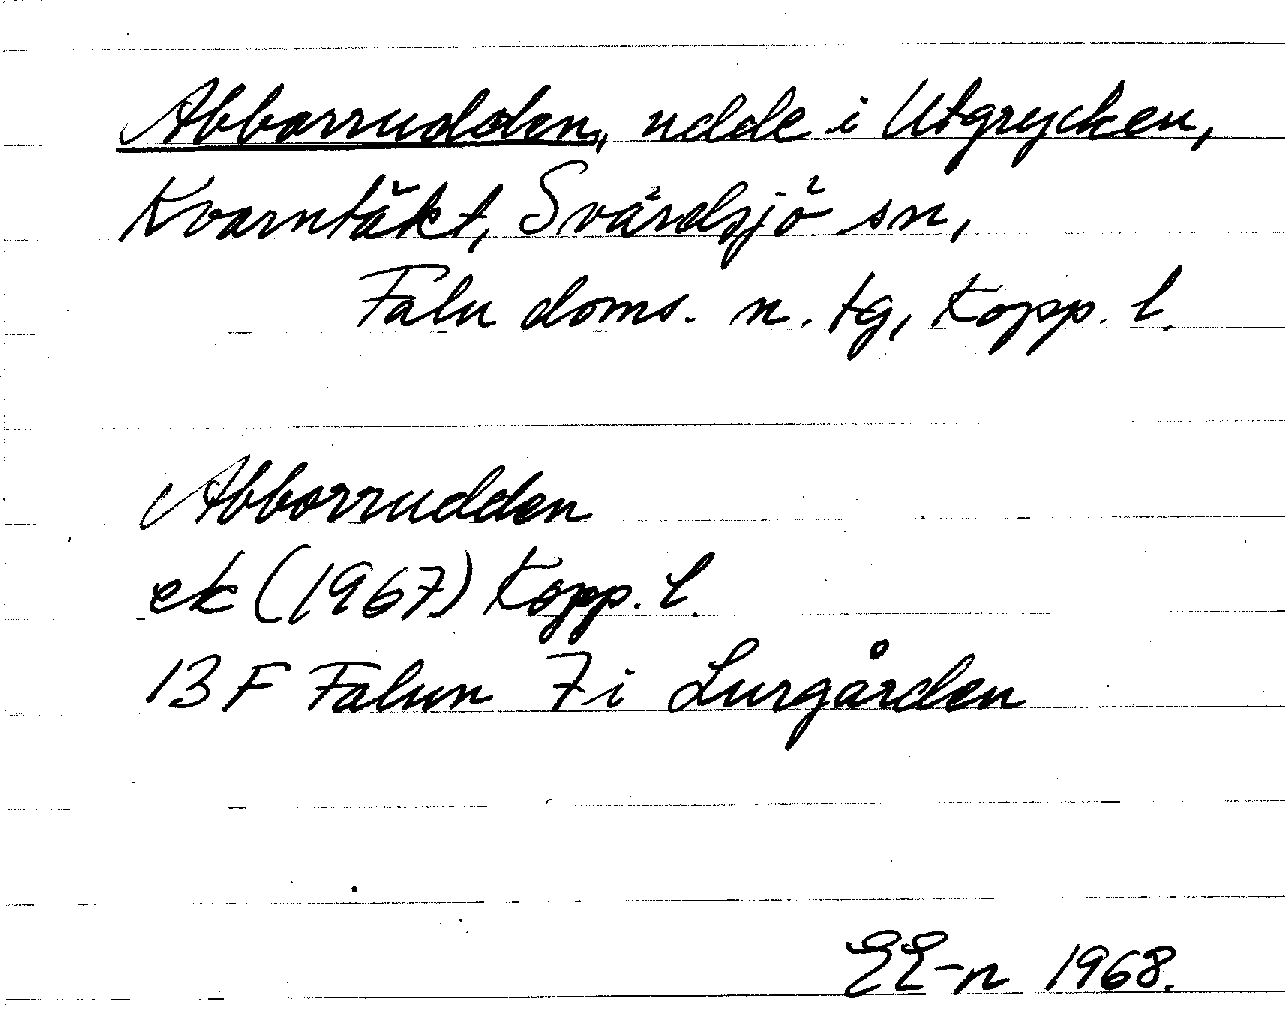 Abborrudden, udde i Utgrycken,
Kvarntäkt, Svärdsjö sn,
Falu doms. n. tg, Kopp. l.
Abborrudden
ek (1967) Kopp. l.
13 F Falun 7 i Lurgården
EE-n 1968.